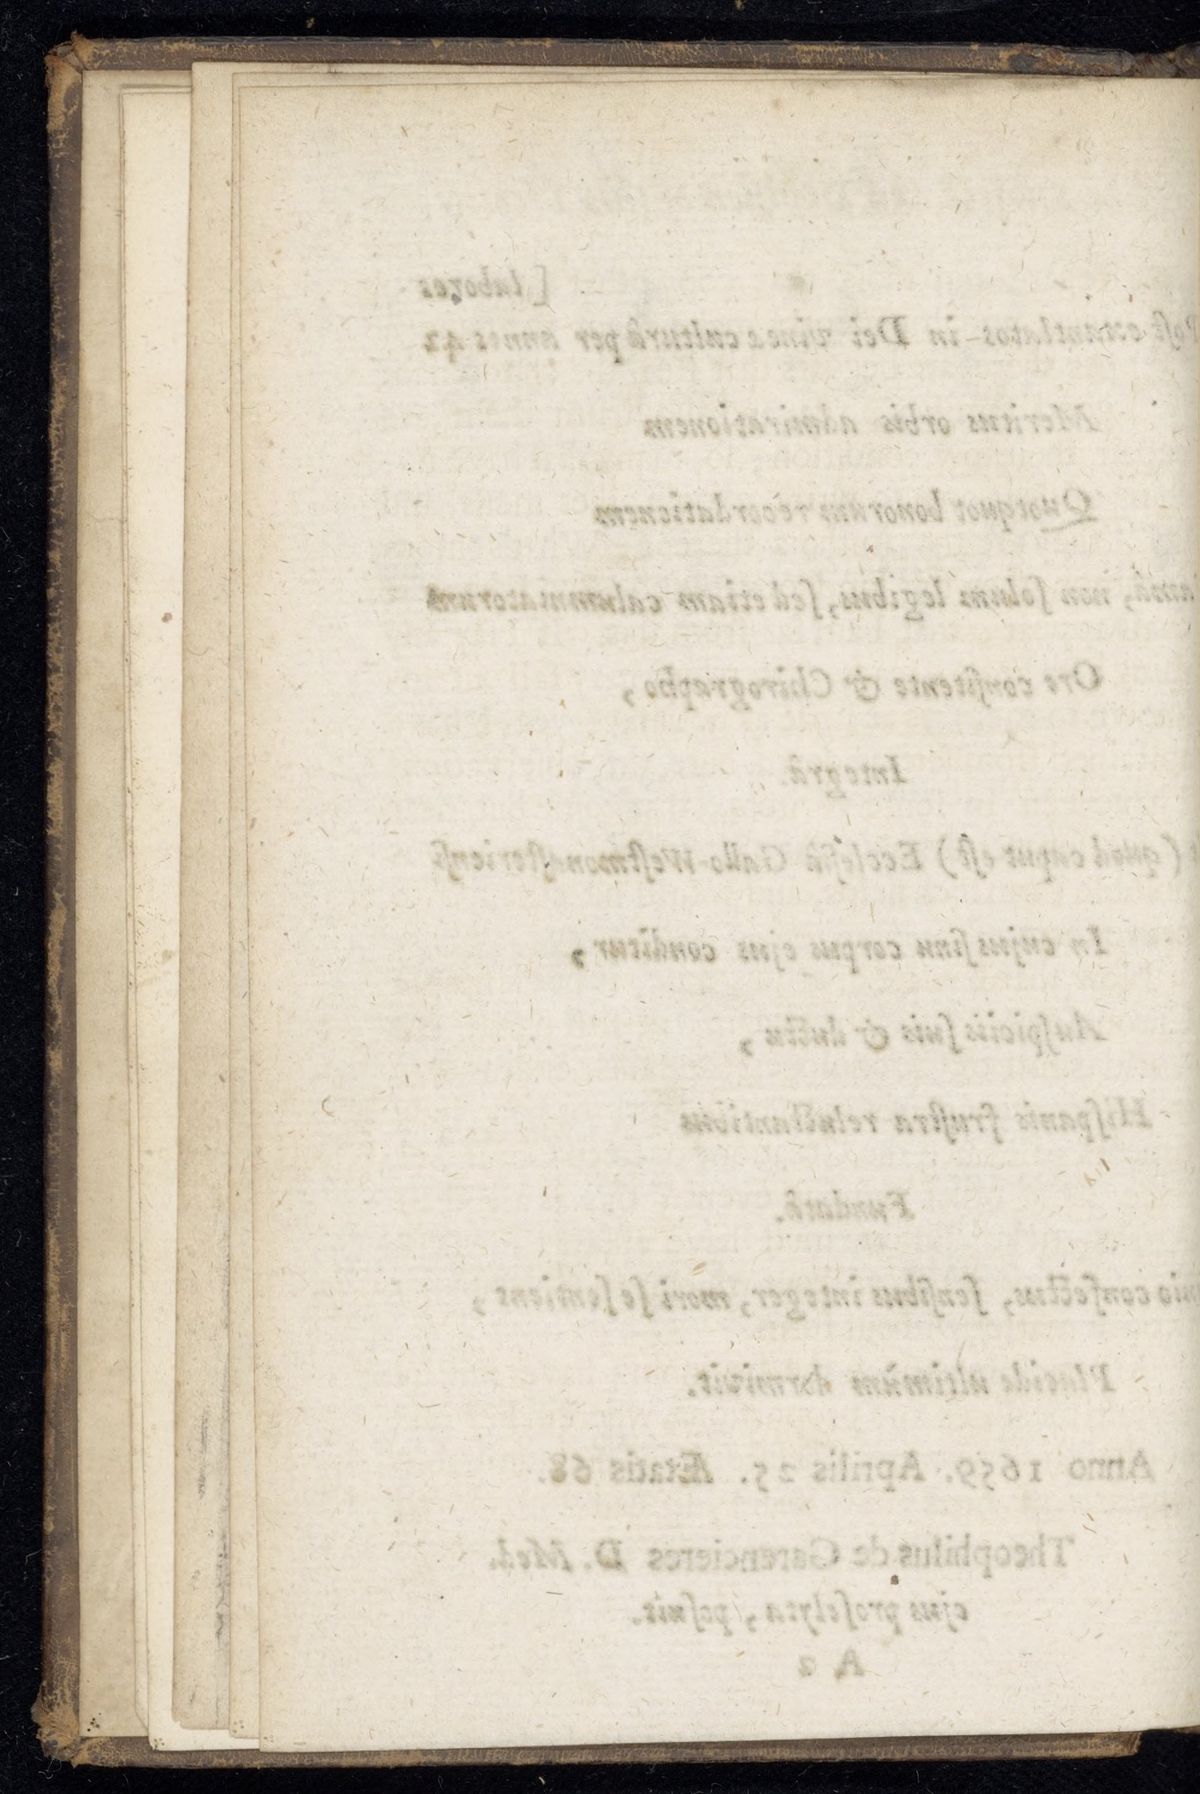 [labores
exantlatos in Dei vineæ culturâ per annos 42
Meritus orbis admirationem
Quotquot bonorum recordationem
non solum legibus, sed etiam calumniatorum
Ore confitente & Chirographo,
Integrâ
(quod caput est) Ecclesiâ Gallo-Westmonasteriensi
In cujus sinu corpus ejus conditur,
Auspiciis suis & ductu,
Hispanis frustra reluctantibus
Fundatâ.
confectus, sensibus integer, mori se sentiens,
Placide ultimùm dormivit.
Anno 1659. Aprilis 25. Ætatis 68.
Theophilus de Garencieres D. Med.
ejus proselyta, posuit.
A 2